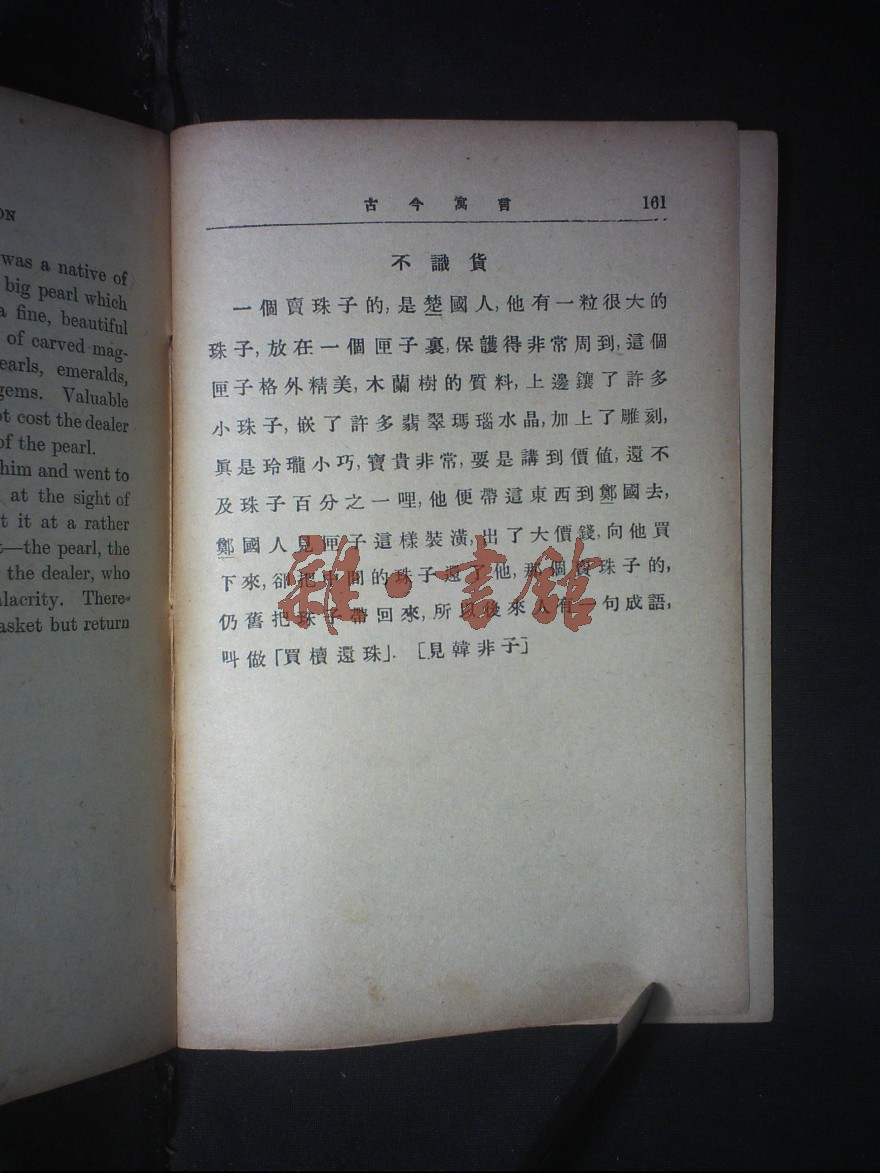 ON
was a native of
big pearl which
a fine, beautiful
of carved mag-
earls, emeralds,
gems. Valuable
ot cost the dealer
of the pearl.
him and went to
at the sight of
t it at a rather
—the pearl, the
the dealer, who
lacrity. There-
asket but return
古今寓言 161
不識貨
一個賣珠子的,是楚國人,他有一粒很大的
珠子,放在一個匣子裏,保護得非常周到,這個
匣子格外精美,木蘭樹的質料,上邊鑲了許多
小珠子,嵌了許多翡翠瑪瑙水晶,加上了雕刻,
眞是玲瓏小巧,寶貴非常,要是講到價値,還不
及珠子百分之一哩,他便帶這東西到鄭國去,
鄭國人見匣子這樣裝潢,出了大價錢,向他買
下來,卻把中間的珠子還了他,那個賣珠子的,
仍舊把珠子帶回來,所以後來人有一句成語,
叫做「買櫝還珠」.[見韓非子]
雜·書館